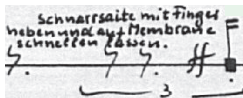 Schnarrsaite mit Finger
heben und auf Membrane
schnellen lassen.
ff
3